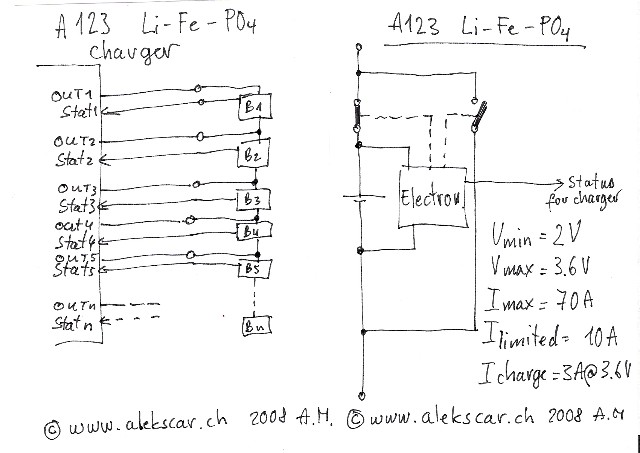 A123 Li-Fe-PO4
charger
OUT1
Stat1
B1
OUT2
Stat2
B2
OUT3
Stat3
B3
Out4
Stat4
B4
OUT5
Stat5
B5
OUTn
Statn
Bn
© www.alekscar.ch 2008 A.M.
A123 Li-Fe-PO4
Electron
Status
for charger
Umin = 2V
Vmax = 3.6V
Imax = 70A
Ilimited = 10A
Icharge = 3A@3.6V
© www.alekscar.ch 2008 A.M